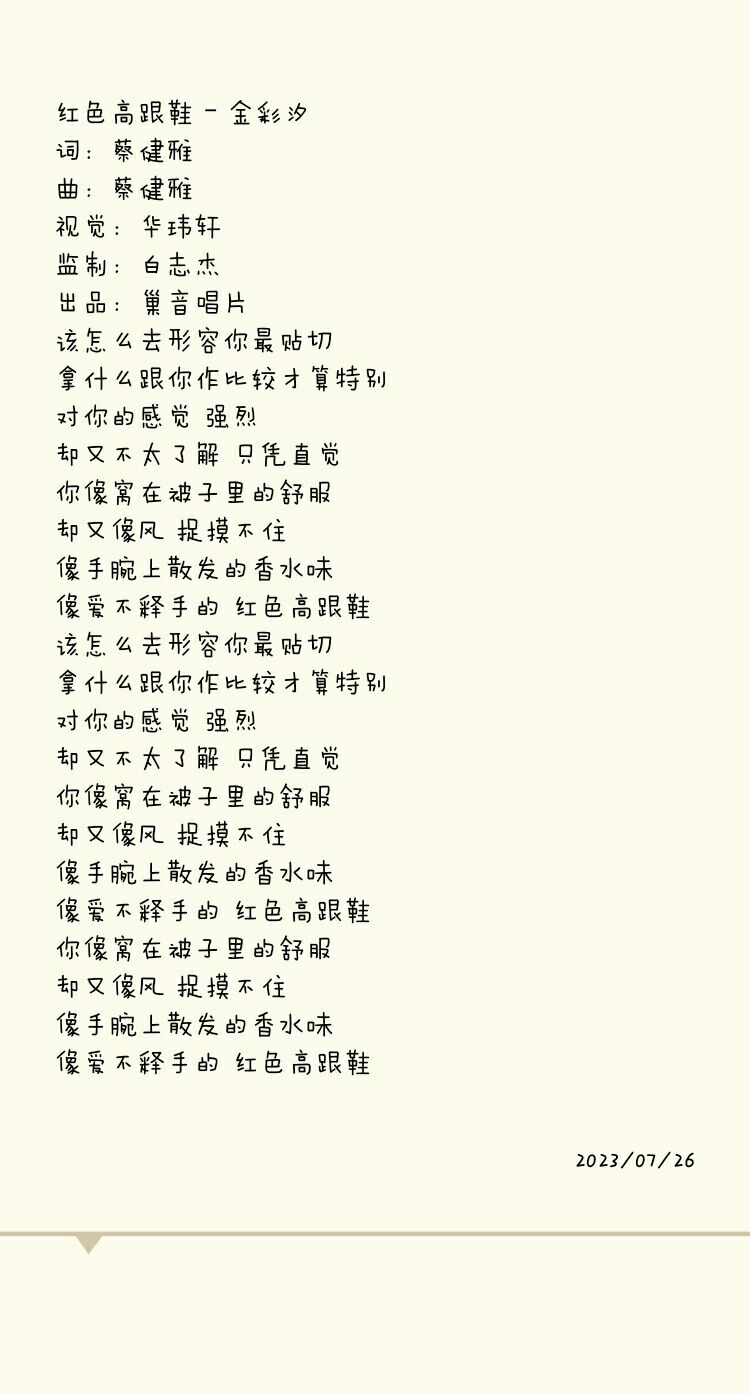 红色高跟鞋 - 金彩汐
词: 蔡健雅
曲: 蔡健雅
视觉: 华玮轩
监制: 白志杰
出品: 巢音唱片
该怎么去形容你最贴切
拿什么跟你作比较才算特别
对你的感觉 强烈
却又不太了解 只凭直觉
你像窝在被子里的舒服
却又像风 捉摸不住
像手腕上散发的香水味
像爱不释手的 红色高跟鞋
该怎么去形容你最贴切
拿什么跟你作比较才算特别
对你的感觉 强烈
却又不太了解 只凭直觉
你像窝在被子里的舒服
却又像风 捉摸不住
像手腕上散发的香水味
像爱不释手的 红色高跟鞋
你像窝在被子里的舒服
却又像风 捉摸不住
像手腕上散发的香水味
像爱不释手的 红色高跟鞋
2023/07/26